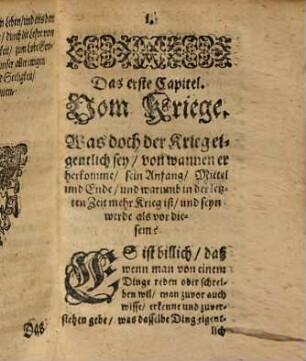 ch leben / und uns der
/ durch die lehre von
keit / zum lobe Got-
unser aller wegen
d Seligkeit /
men.
Das
1.
Das erste Capitel.
Vom Kriege.
Was doch der Krieg ei-
gentlich sey / von wannen er
herkomme / sein Anfang / Mittel
und Ende / und warumb in der letz-
ten Zeit mehr Krieg ist / und seyn
werde als vor die-
sem?
ES ist billich / daß
wenn man von einem
Dinge reden oder schrei-
ben wil / man zuvor auch
wisse / erkenne und zuver-
stehen gebe / was dasselbe Ding eigent-
lich